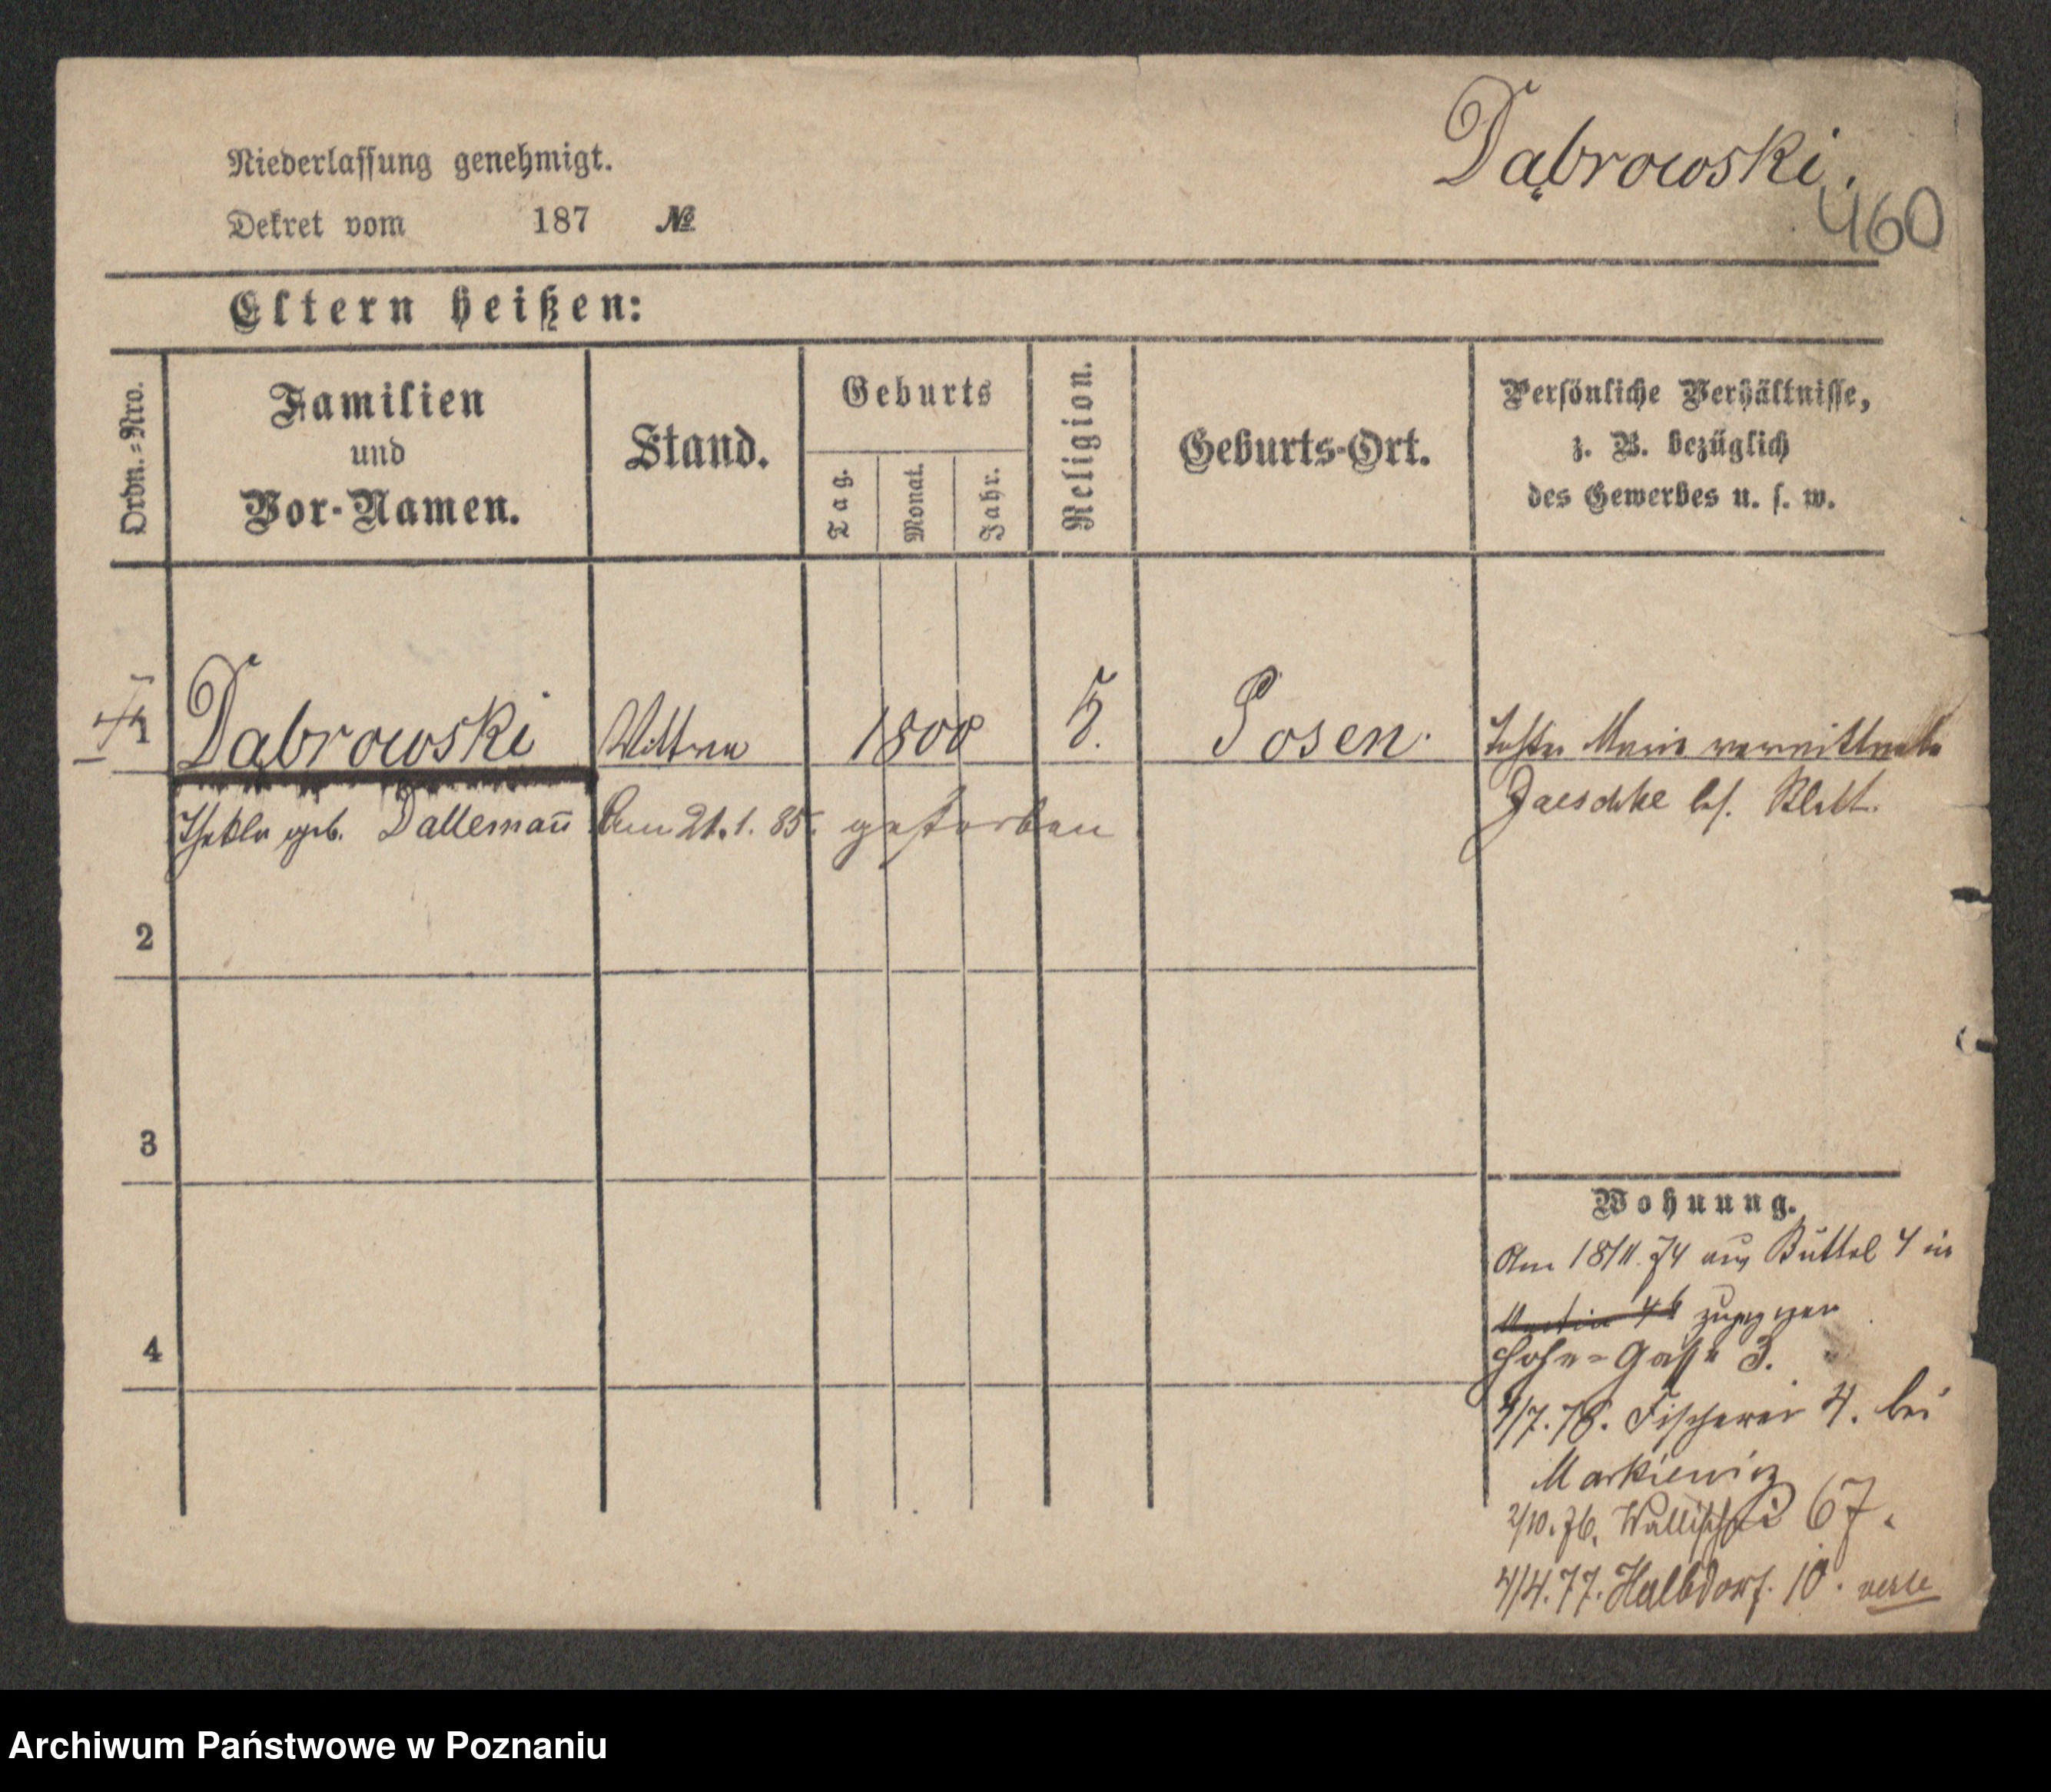 Dąbrowski.
460
Niederlassung genehmigt.
Dekret vom 187 №
Eltern heißen:
Ordn.=Nro.
Familien
und
Vor-Namen.
Stand.
Geburts
Tag.
Monat.
Jahr.
Religion.
Geburts-Ort.
Persönliche Verhältnisse,
z. B. bezüglich
des Gewerbes u. s. w.
1
Dąbrowski Wittwe 1800 Posen. Tochter Marie verwittwete
Thekla geb. Dallemañ Am 21.1.85. gestorben Jaeschke bes. Blatt.
2
3
4
Wohnung.
Am 18/11.74 aus Büttel 4 in
Martin 46 zugezogen
Hohe=Gasse 3.
4/7.76. Fischerei 4. bei
Markiewicz
2/10.76. Wallischei 67.
4/4.77. Halbdorf. 10. verte
Archiwum Państwowe w Poznaniu